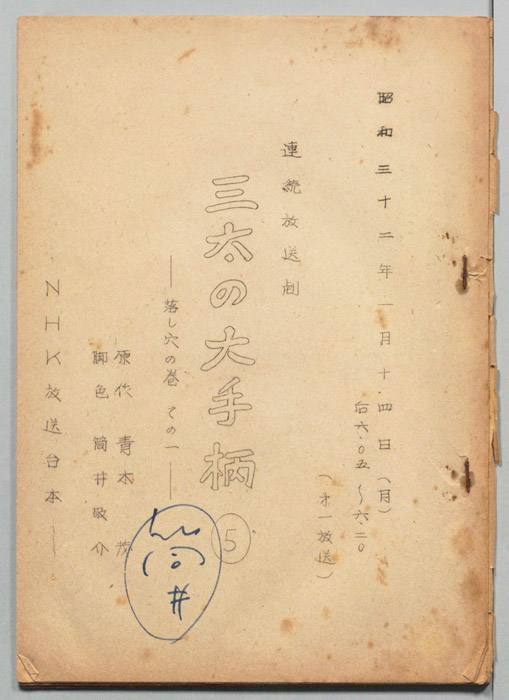 昭和三十二年一月十四日(月)
后六.○五～六.二○
(才一放送)
連続放送劇
三太の大手柄 ⑤
——落し穴の巻 その一——
原作 青木 茂
脚色 筒井敬介
NHK放送台本——
筒井